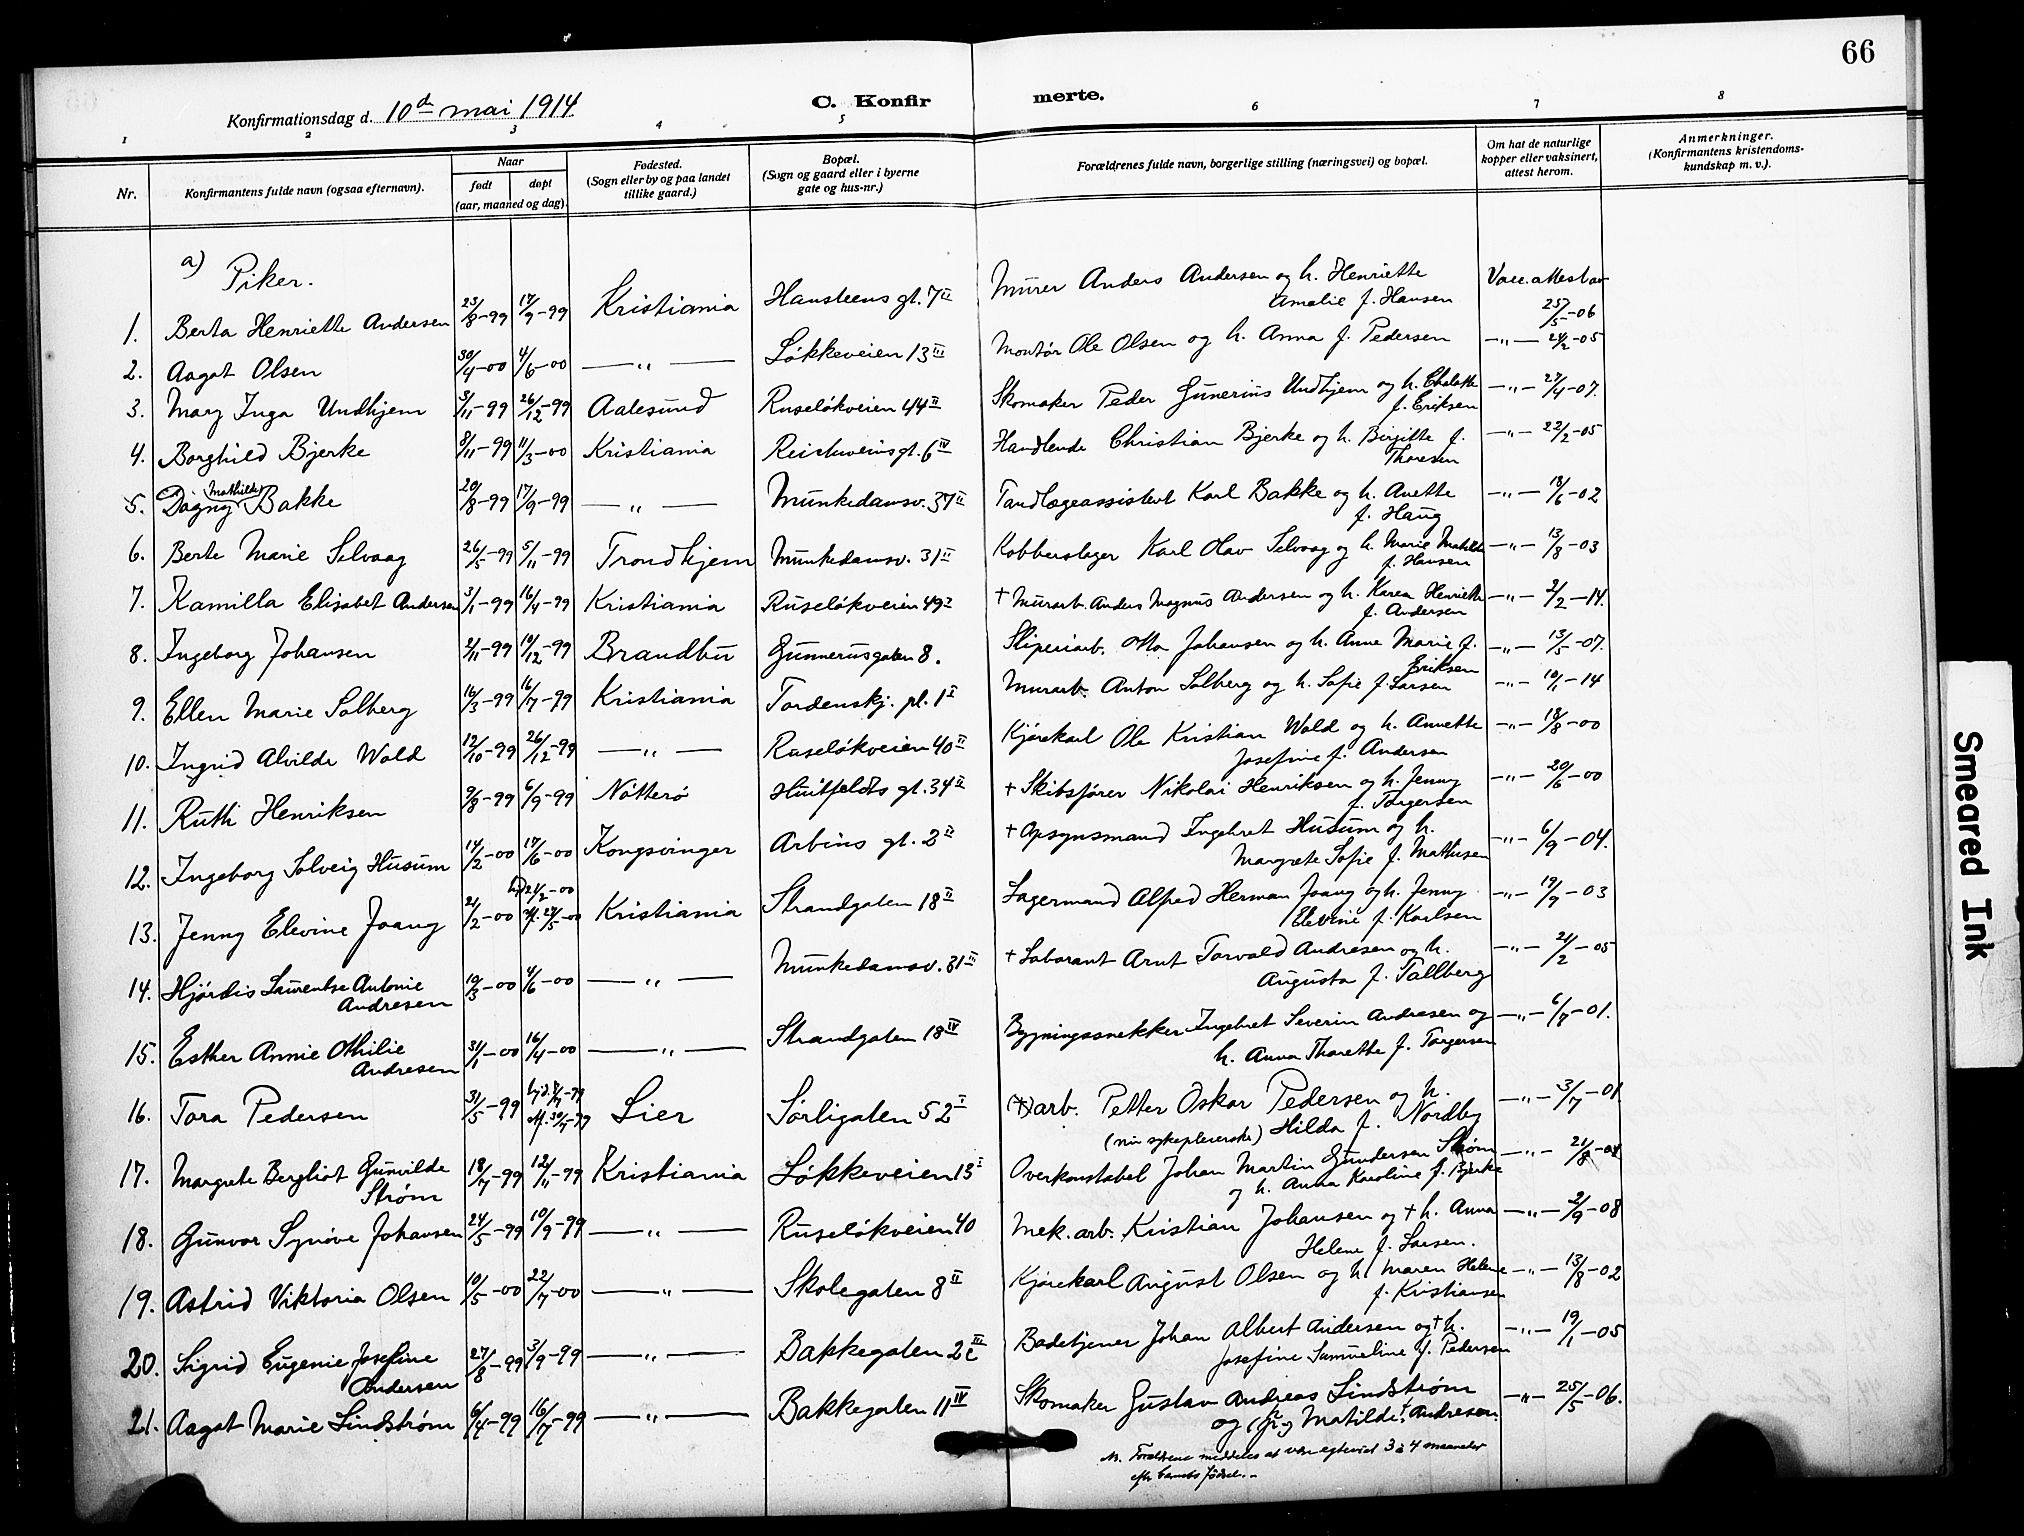 66
Konfirmationsdag d. 10de mai 1914
C. Konfir merte.
1 2 3 4 5 6 7 8
Nr.
Konfirmantens fulde navn (ogsaa efternavn).
Naar
født døpt
(aar, maaned og dag).
Fødested.
(Sogn eller by og paa landet
tillike gaard.)
Bopæl.
(Sogn og gaard eller i byerne
gate og hus-nr.)
Forældrenes fulde navn, borgerlige stilling (næringsvei) og bopæl.
Om hat de naturlige
kopper eller vaksinert,
attest herom.
Anmerkninger.
(Konfirmantens kristendoms-
kundskap m. v.).
a) Piker.
1. Berta Henriette Andersen 23/8-99 17/9-99 Kristiania Hansteens gt. 7 II Murer Anders Andersen og h. Henriette Vacc. attest av
Amalie f. Hansen 25/5-06
2. Aagot Olsen 30/4-00 4/6-00 —„— Løkkeveien 13 III Montør Ole Olsen og h. Anna f. Pedersen —„— 24/2-05
3. Mary Inga Undhjem 3/11-99 26/12-99 Aalesund Ruseløkveien 44 II Skomaker Peder Gunerius Undhjem og h. —„— 27/4-07.
f. Eriksen
4. Borghild Bjerke 8/11-99 11/3-00 Kristiania gt. 6 IV Handlende Christian Bjerke og h. Birgitte f. —„— 22/2-05
Thoresen
5. Dagny Mathilde Bakke 20/8-99 17/9-99 —„— Munkedamsv. 37 II Tandlægeassistent Karl Bakke og h. Anette —„— 18/6-02
f. Haug
6. Berte Marie Selvaag 26/5-99 5/11-99 Trondhjem Munkedamsv. 31 II Kobberslager Karl Olav Selvaag og h. Marie Matilde —„— 13/8-03
f. Hansen
7. Kamilla Elisabet Andersen 3/1-99 16/4-99 Kristiania Ruseløkveien 49 + Murarb. Anders Magnus Andersen og h. Karen Henriette —„— 2/2-14.
f. Andersen
8. Ingeborg Johansen 2/11-99 10/12-99 Brandbu Gunnerusgaten 8. Sliperiarb. Otto Johansen og h. Anne Marie f. —„— 13/5-07.
Eriksen
9. Ellen Marie Solberg 16/3-99 16/7-99 Kristiania Tordenskj. pl. 1 I Murarb. Anton Solberg og h. Sofie f. Larsen —„— 10/1-14
10. Ingrid Alvilde Wold 12/10-99 26/12-99 —„— Ruseløkveien 40 II Kjørekarl Ole Kristian Wold og h. Annette —„— 18/8-00
Josefine f. Andersen
11. Ruth Henriksen 9/8-99 6/9-99 Nøtterø Huitfeldts gt. 34 II + Skibsfører Nikolai Henriksen og h. Jenny —„— 20/6-00
f. Torgersen
12. Ingeborg Solveig Husum 14/2-00 17/6-00 Kongsvinger Arbins gt. 2 II + Opsynsmand Ingebret Husum og h. —„— 6/9-04.
Margrete Sofie f. Mathisen
13. Jenny Elevine Joang 21/2-00 hjd. 24/2-00 Kristiania Strandgaten 18 II Lagermand Alfred Herman Joang og h. Jenny —„— 19/9-03
st. 27/5-00 Elevine f. Karlsen
14. Hjørdis Laurentse Antonie 19/3-00 4/6-00 —„— Munkedamsv. 31 II + Laborant Arnt Torvald Andresen og h. —„— 21/2-05
Andresen Augusta f. Tallberg
15. Esther Annie Othilie 31/1-00 16/4-00 —„— Strandgaten 18 IV Bygningssnekker Ingebret Severin Andresen og —„— 6/8-01.
Andresen h. Anna Tharette f. Torgersen
16. Tora Pedersen 31/5-99 Lier Sørligaten 52 I (+) arb. Petter Oskar Pedersen og h. —„— 3/7-01
(nu sykepleierske) Hilda f. Nordby
17. Margrete Bergliot Gunvilde 18/7-99 12/11-99 Kristiania Løkkeveien 13 I Overkonstabel Johan Martin Gundersen Strøm —„— 21/8-04
Strøm og h. Anna Karoline f. Bjerke
18. Gunvor Synøve Johansen 24/5-99 10/9-99 —„— Ruseløkveien 40 Mek. arb. Kristian Johansen og + h. Anna —„— 2/9-08
Helene f. Larsen.
19. Astrid Viktoria Olsen 10/5-00 22/7-00 —„— Skolegaten 8 II Kjørekarl August Olsen og h. Maren Helene —„— 13/8-02
f. Kristiansen
20. Sigrid Eugenie Josefine 27/8-99 3/9-99 —„— Bakkegaten 2c III Badetjener Johan Albert Andersen og + h. —„— 19/1-05
Andersen Josefine Samueline f. Pedersen
21. Aagot Marie Lindstrøm 6/4-99 16/7-99 —„— Bakkegaten 11 IV Skomaker Gustav Andreas Lindstrøm —„— 25/5-06.
og Matilde Andresen
Forældrene meddeles at være egteviet 3 à 4 maaneder
efter barnets fødsel.
Smeared Ink